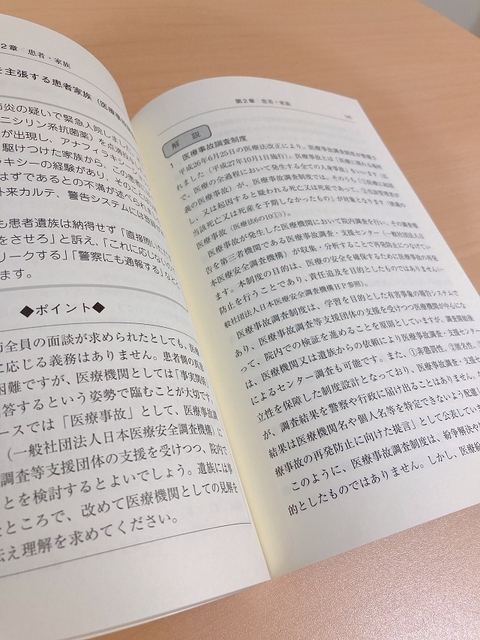 2章　患者・家族
を主張する患者家族（医療事
炎の疑いで緊急入院しました
ニシリン系抗菌薬）を点滴
が出現し、アナフィラキシー
駆けつけた家族から、この患
ラキシーの経験があり、そのこ
はずであるとの不満が述べられ
外来カルテ、警告システムには
も患者遺族は納得せず「直接
をさせろ」と訴え、「これに応じない
リークする」「警察にも通報する」など
ます。
◆ポイント◆
全員の面談が求められたとしても、
に応じる義務はありません。患者側の
困難ですが、医療機関としては「事実関係
答するという姿勢で臨むことが大切です
ースでは「医療事故」として、医療事故
（一般社団法人日本医療安全調査機構）に
調査等支援団体の支援を受けつつ、院内で
とを検討するとよいでしょう。遺族には事
たところで、改めて医療機関としての見解を
伝え理解を求めてください。
第2章　患者・家族
解　説
1　医療事故調査制度
平成26年6月25日の医療法改正により、医療事故調査制度が
れました（平成27年10月1日施行）。医療事故とは「医療に関わる場所
で、医療の全過程において発生する全ての人身事故」をいいます（広
義の医療事故）が、医療事故調査制度では、そのうち、「
し、又は起因すると疑われる死亡又は死産であって、
当該死亡又は死産を予期しなかったもの」が対象となります（
医療事故（医療法6の10①））。
医療事故が発生した医療機関において院内調査を行い、その調査報
告を第三者機関である医療事故調査・支援センター（一般社団法人日
本医療安全調査機構）が収集・分析することで再発防止につなげてい
ます。本制度の目的は、医療の安全を確保するために医療事故の再発
防止を行うことであり、責任追及を目的としたものではありません（一
般社団法人日本医療安全調査機構ＨＰ参照）。
医療事故調査制度は、学習を目的とした有害事象の報告システムで
あり、医療事故調査等支援団体の支援を受けつつ医療機関が中心にな
って、院内での検証を進めることを原則としていますが、
は、医療機関又は遺族からの依頼により医療事故調査・支援センター
によるセンター調査も可能です。また、①非懲罰性、②秘匿性、
立性を保障した制度設計となっており、医療事故調査・支援セ
が、調査結果を警察や行政に届け出ることはありません。
結果は医療機関名や個人名等を特定できないよう配慮し
療事故の再発防止に向けた提言」として公表していま
このように、医療事故調査制度は、紛争解決や
的としたものではありません。しかし、医療